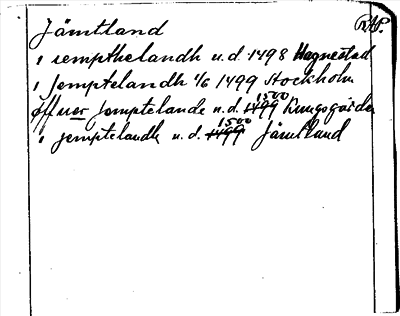 Jämtland RAP.
i iempthelandh u.d. 1498 Hagnestad
i Jemptelandh 1/6 1499 Stockholm
öffuer Jemptelande u.d. 1499 1500 Kungsgården
i jemptelandh u.d. 1499 1500 Jämtland